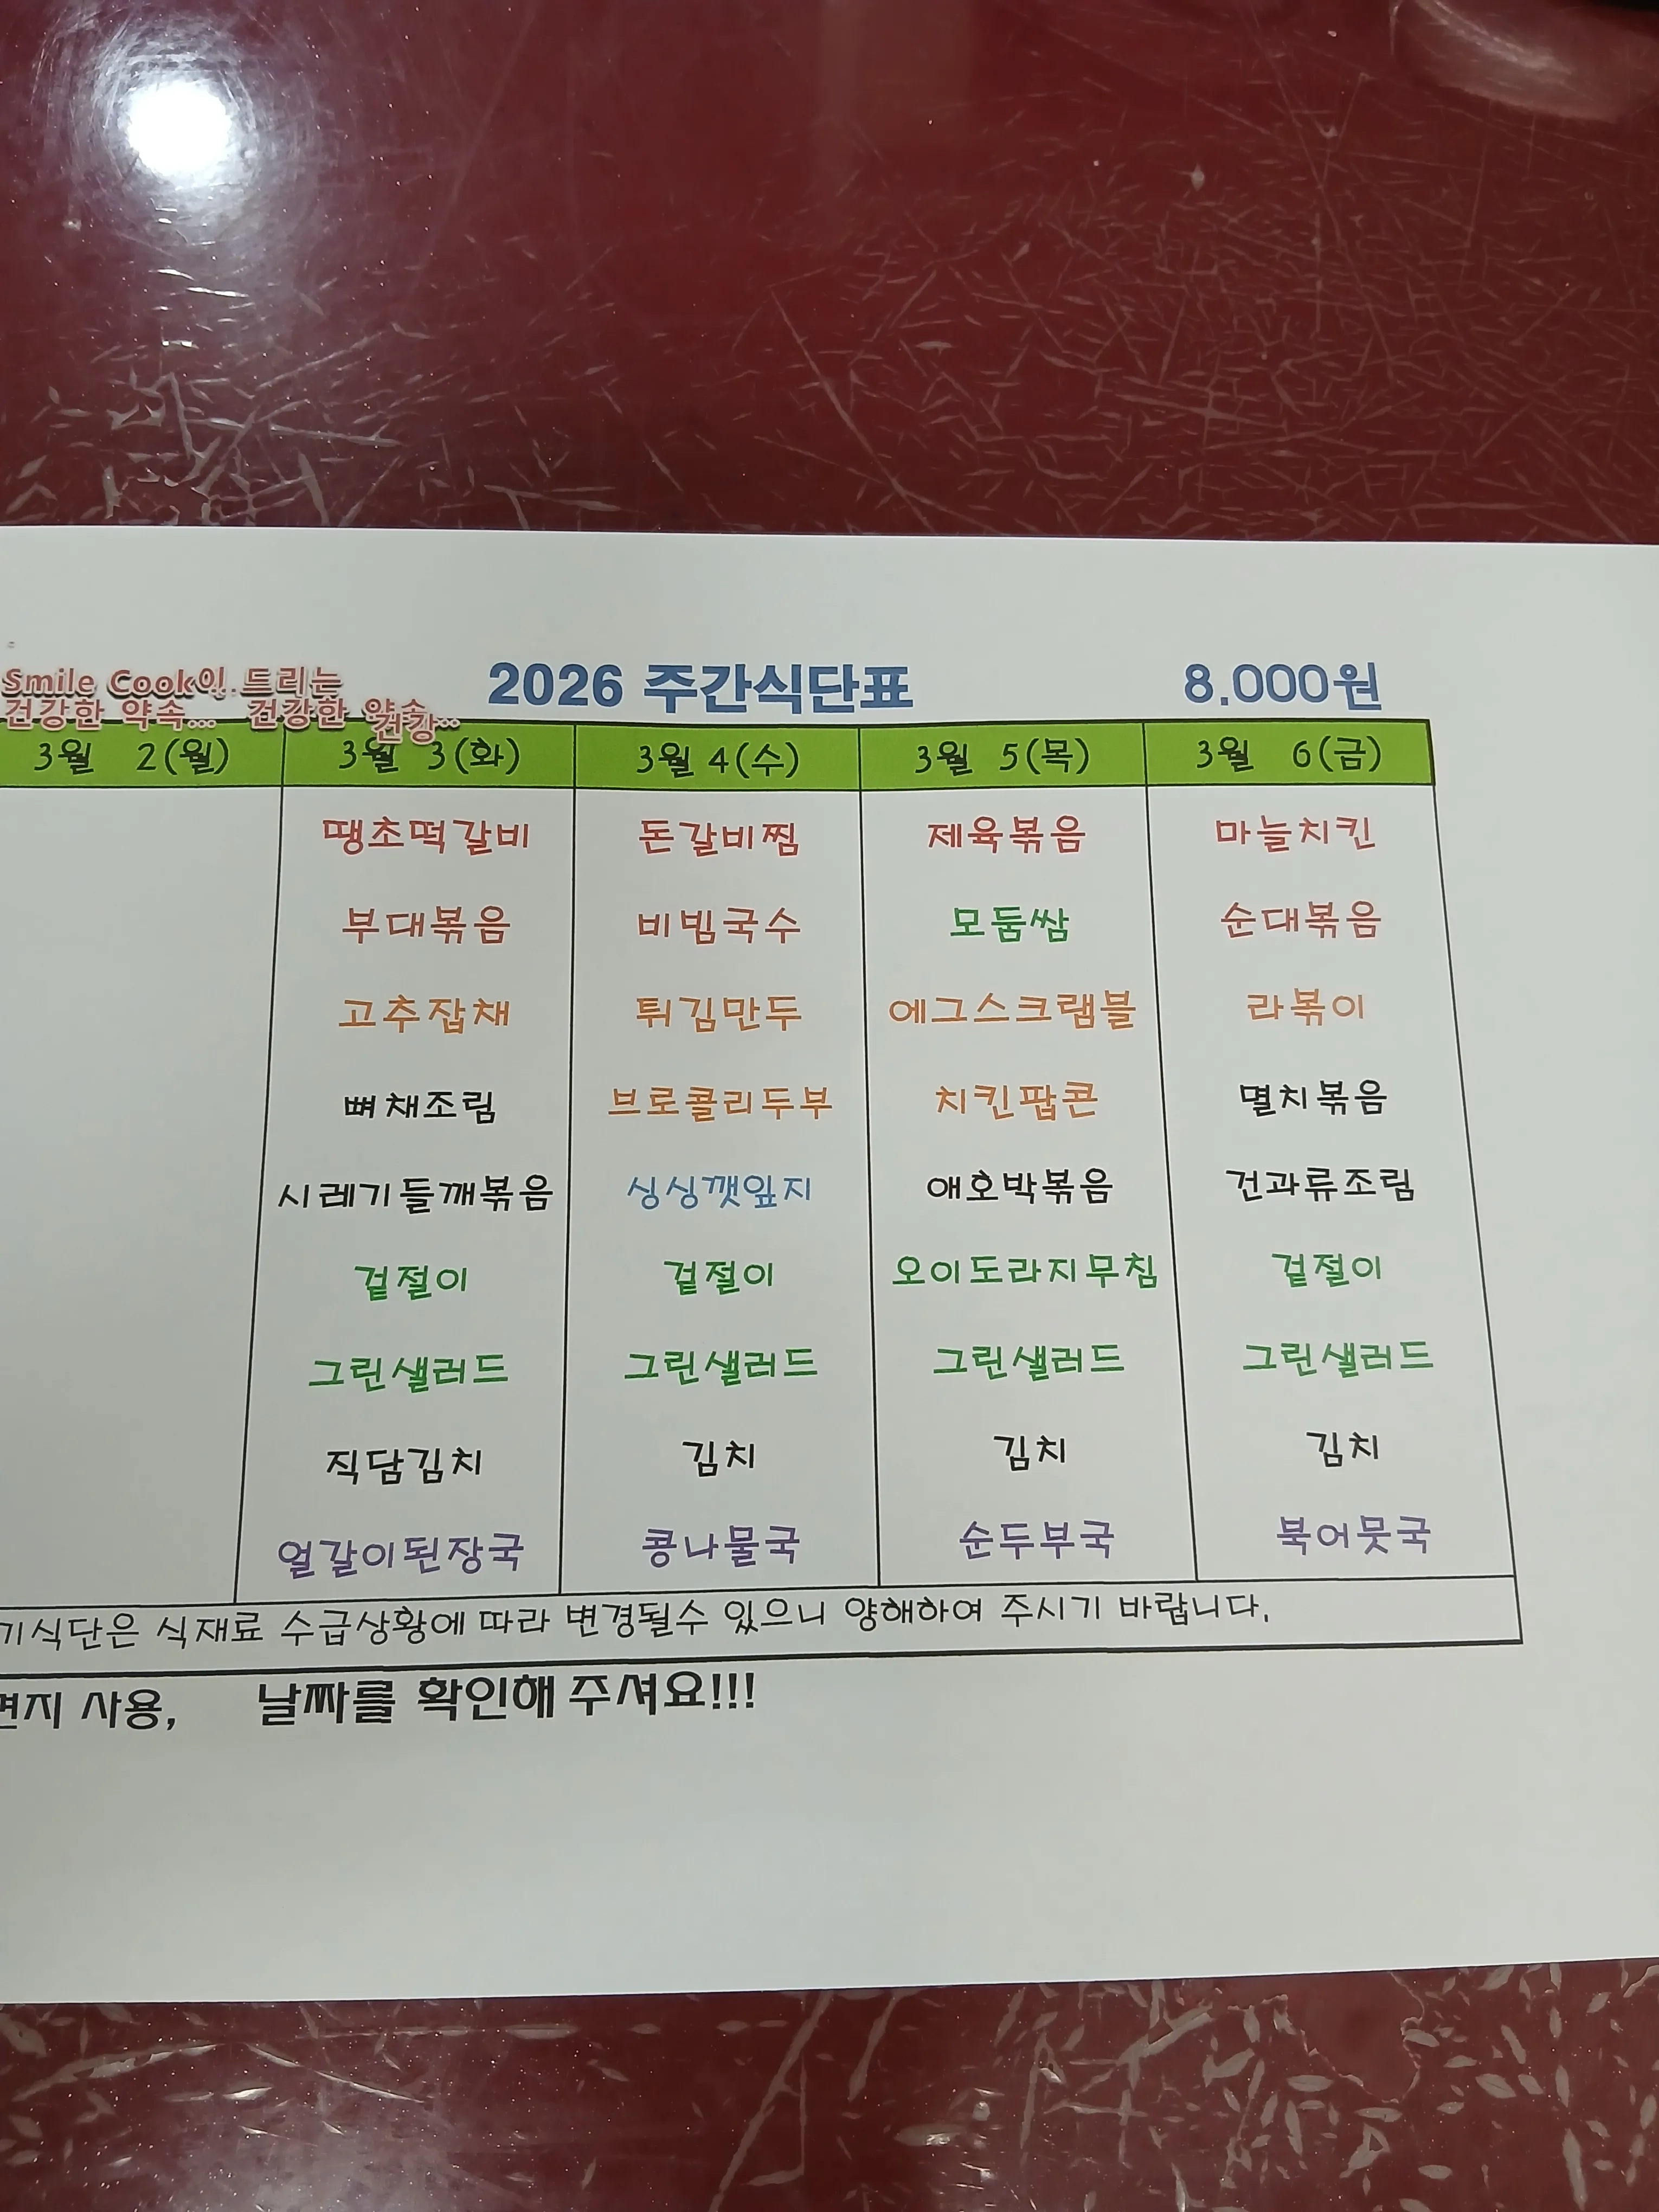 Smile Cook이 드리는
건강한 약속... 건강한 약속...
건강
2026 주간식단표 8.000원
3월 2(월) 3월 3(화) 3월 4(수) 3월 5(목) 3월 6(금)
땡초떡갈비 돈갈비찜 제육볶음 마늘치킨
부대볶음 비빔국수 모둠쌈 순대볶음
고추잡채 튀김만두 에그스크램블 라볶이
뼈채조림 브로콜리두부 치킨팝콘 멸치볶음
시레기들깨볶음 싱싱깻잎지 애호박볶음 건과류조림
겉절이 겉절이 오이도라지무침 겉절이
그린샐러드 그린샐러드 그린샐러드 그린샐러드
직담김치 김치 김치 김치
얼갈이된장국 콩나물국 순두부국 북어뭇국
기식단은 식재료 수급상황에 따라 변경될수 있으니 양해하여 주시기 바랍니다.
면지 사용, 날짜를 확인해 주셔요!!!